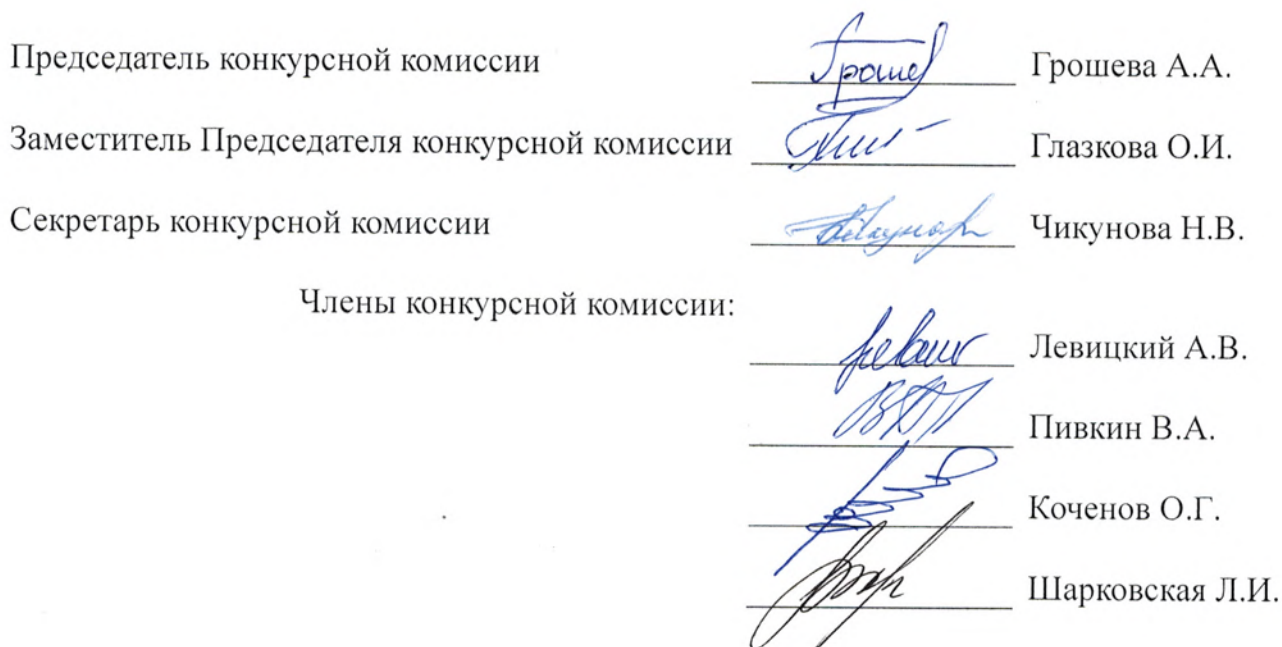 Председатель конкурсной комиссии Грошева А.А.
Заместитель Председателя конкурсной комиссии Глазкова О.И.
Секретарь конкурсной комиссии Чикунова Н.В.
Члены конкурсной комиссии:
Левицкий А.В.
Пивкин В.А.
Коченов О.Г.
Шарковская Л.И.